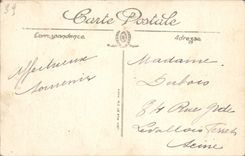 39
Carte Postale
Correspondance
Adresse
Affectueux
Souvenir
Madame
Dubois
84 Rue
Levallois Perret
Seine